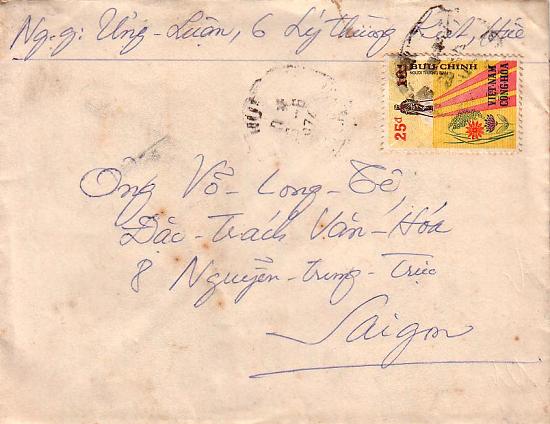 Ng. g: Ưng-Luận, 6 Lý thường Kiệt, Huế
BƯU-CHÍNH
NGƯỜI THƯƠNG BINH
VIỆT-NAM
CỘNG-HÒA
25đ
HUE
Ông Võ-Long-Tê
Đặc-trách Văn-Hóa
8 Nguyễn-trung-Trực
Saigon